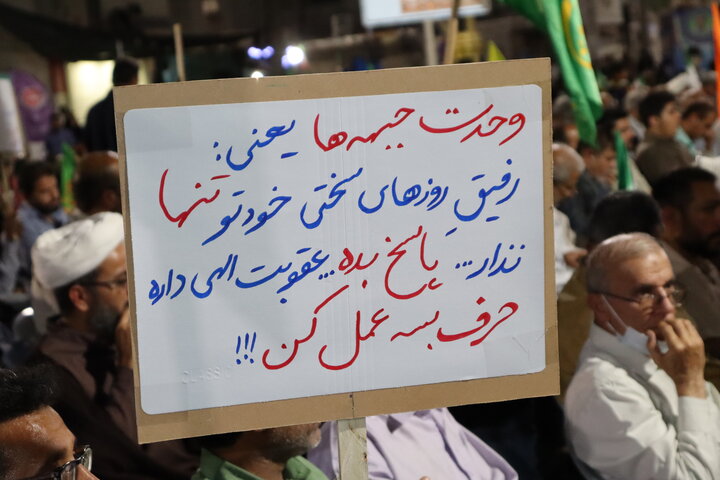 وحدت جبهه‌ها یعنی:
رفیقِ روزهای سختی خودتو تنها
نذار... پاسخ بده... عقوبت الهی داره
حرف بسه عمل کن !!!